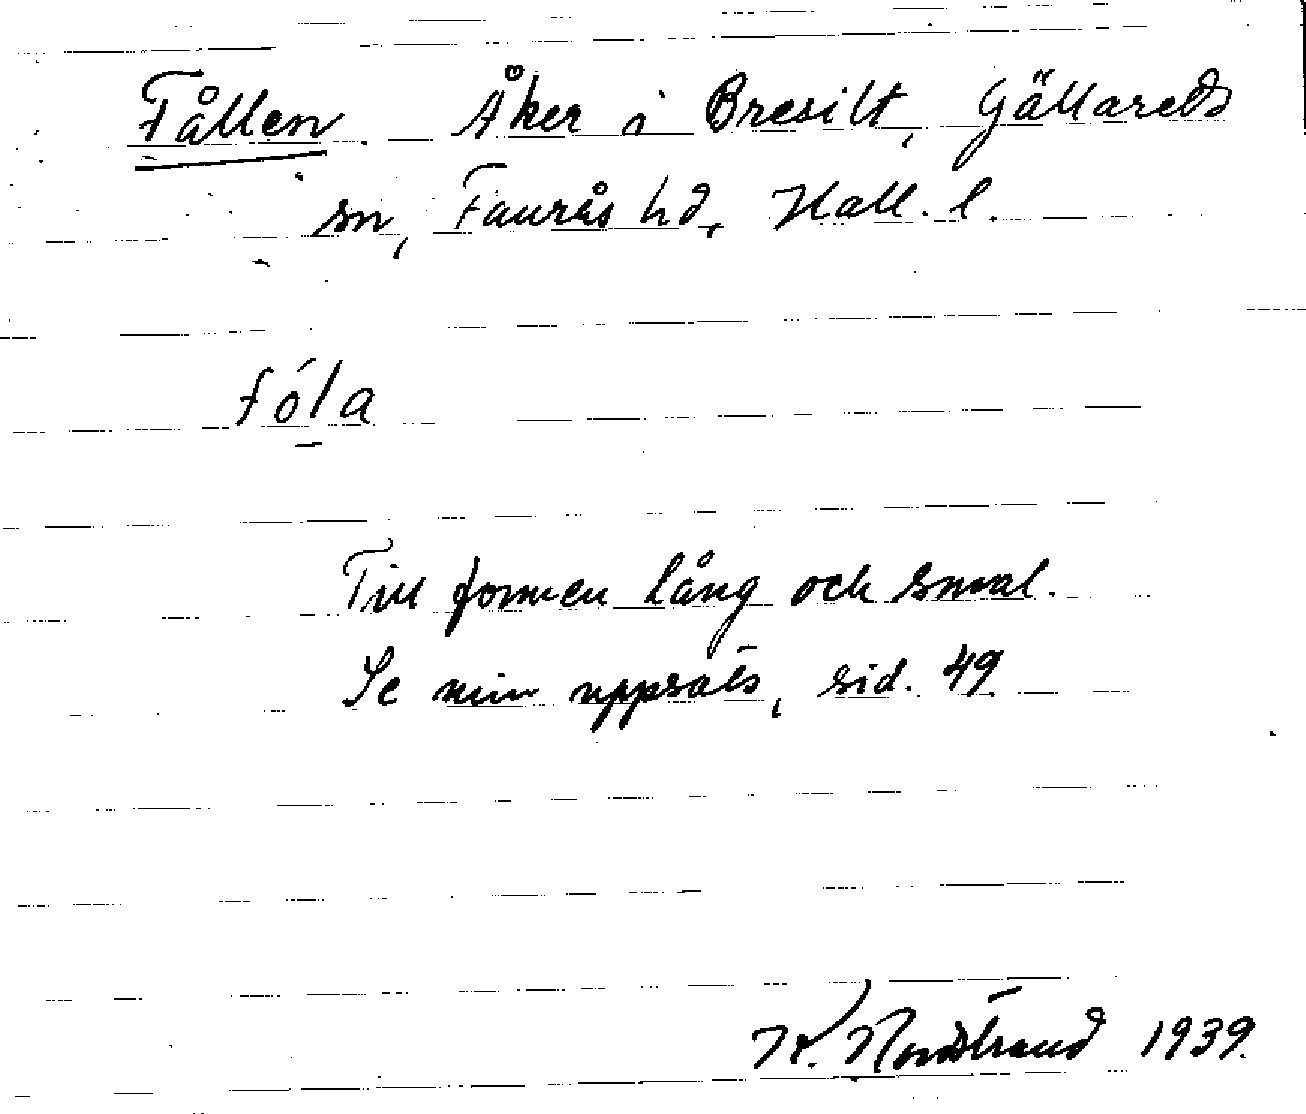 Fållen. Åker i Bresilt, Gällareds
sn, Faurås hd, Hall. l.
fóla
Till formen lång och smal.
Se min uppsats, sid. 49.
K. Nordstrand 1939.